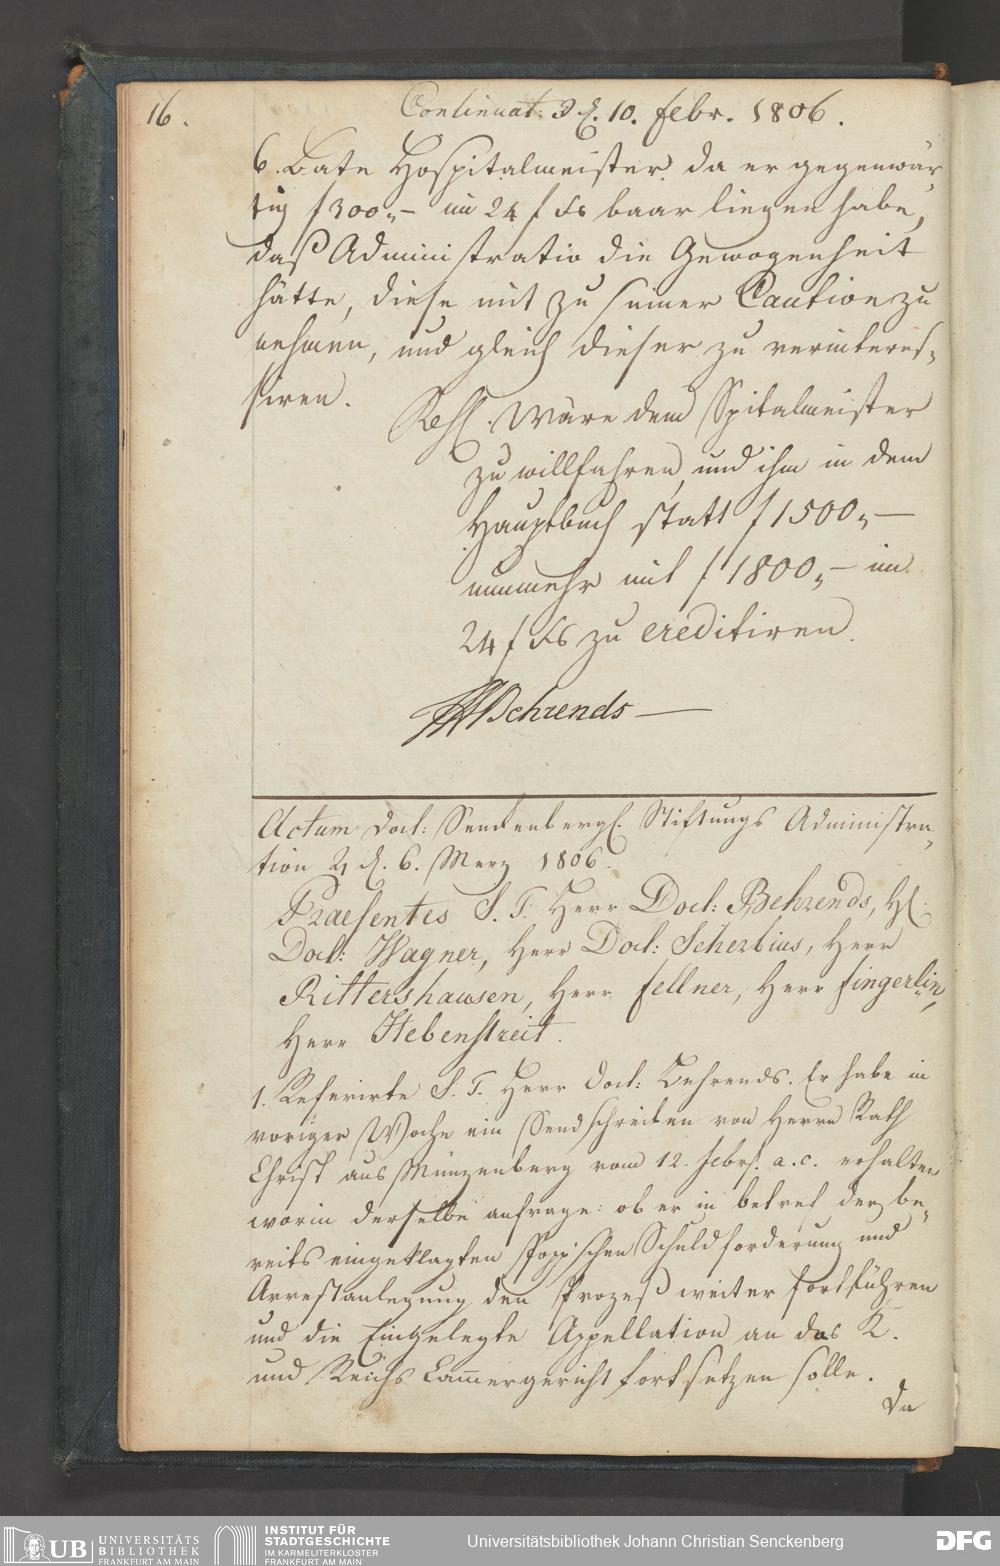 16.
Continuat: d. 10. Febr. 1806.
6. Bate Hospitalmeister, da er gegenwär,
tig f 300,,– im 24 f Fs baar liegen habe,
daß Administratio die Gewogenheit
hätte, diese mit zu seiner Caution zu
nehmen, und gleich dieser zu verinteres,
siren.
Resl. Wäre dem Spitalmeister
zu willfahren, und ihm in dem
Hauptbuch statt f 1500,,–
nunmehr mit f 1800,,– im
24 f Fs zu creditiren.
Behrends
Actum Doct: Senckenbergl. Stiftungs Administra,
tion d. 6. Merz 1806.
Praesentes S. T. Herr Doct: Behrends, H.
Doct: Wagner, Herr Doct: Scherbius, Herr
Rittershausen, Herr Fellner, Herr Fingerlin,
Herr Hebenstreit.
1. Referirte S. T. Herr Doct: Behrends. Er habe in
voriger Woche ein Sendschreiben von Herrn Rath
Christ aus Münzenberg vom 12. Febr. a. c. erhalten
worin derselbe anfrage: ob er in betref der be,
reits eingeklagten Popp'schen Schuldforderung und
Arrestanlegung den Prozeß weiter fortführen
und die Eingelegte Appellation an das K.
und Reichs Cam̄ergericht fortsetzen solle.
Da
UB UNIVERSITÄTS
BIBLIOTHEK
FRANKFURT AM MAIN
INSTITUT FÜR
STADTGESCHICHTE
IM KARMELITERKLOSTER
FRANKFURT AM MAIN
Universitätsbibliothek Johann Christian Senckenberg
DFG